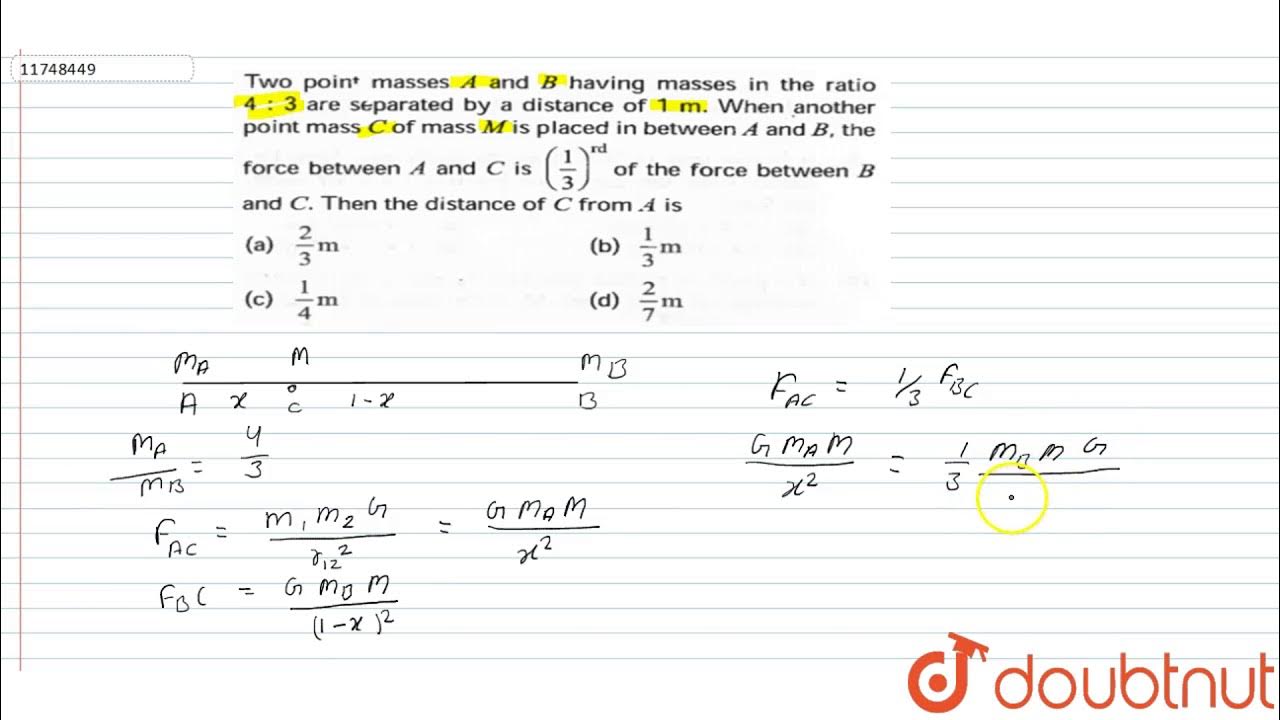 11748449
Two point masses A and B having masses in the ratio
4 : 3 are separated by a distance of 1 m. When another
point mass C of mass M is placed in between A and B, the
force between A and C is (1/3)^rd of the force between B
and C. Then the distance of C from A is
(a) 2/3 m (b) 1/3 m
(c) 1/4 m (d) 2/7 m
M_A M M_B
A x C 1-x B
F_AC = 1/3 F_BC
M_A / M_B = 4/3
G M_A M / x² = 1/3 M_B M G
F_AC = m₁ m₂ G / r₁₂² = G M_A M / x²
F_BC = G M_B M / (1-x)²
doubtnut